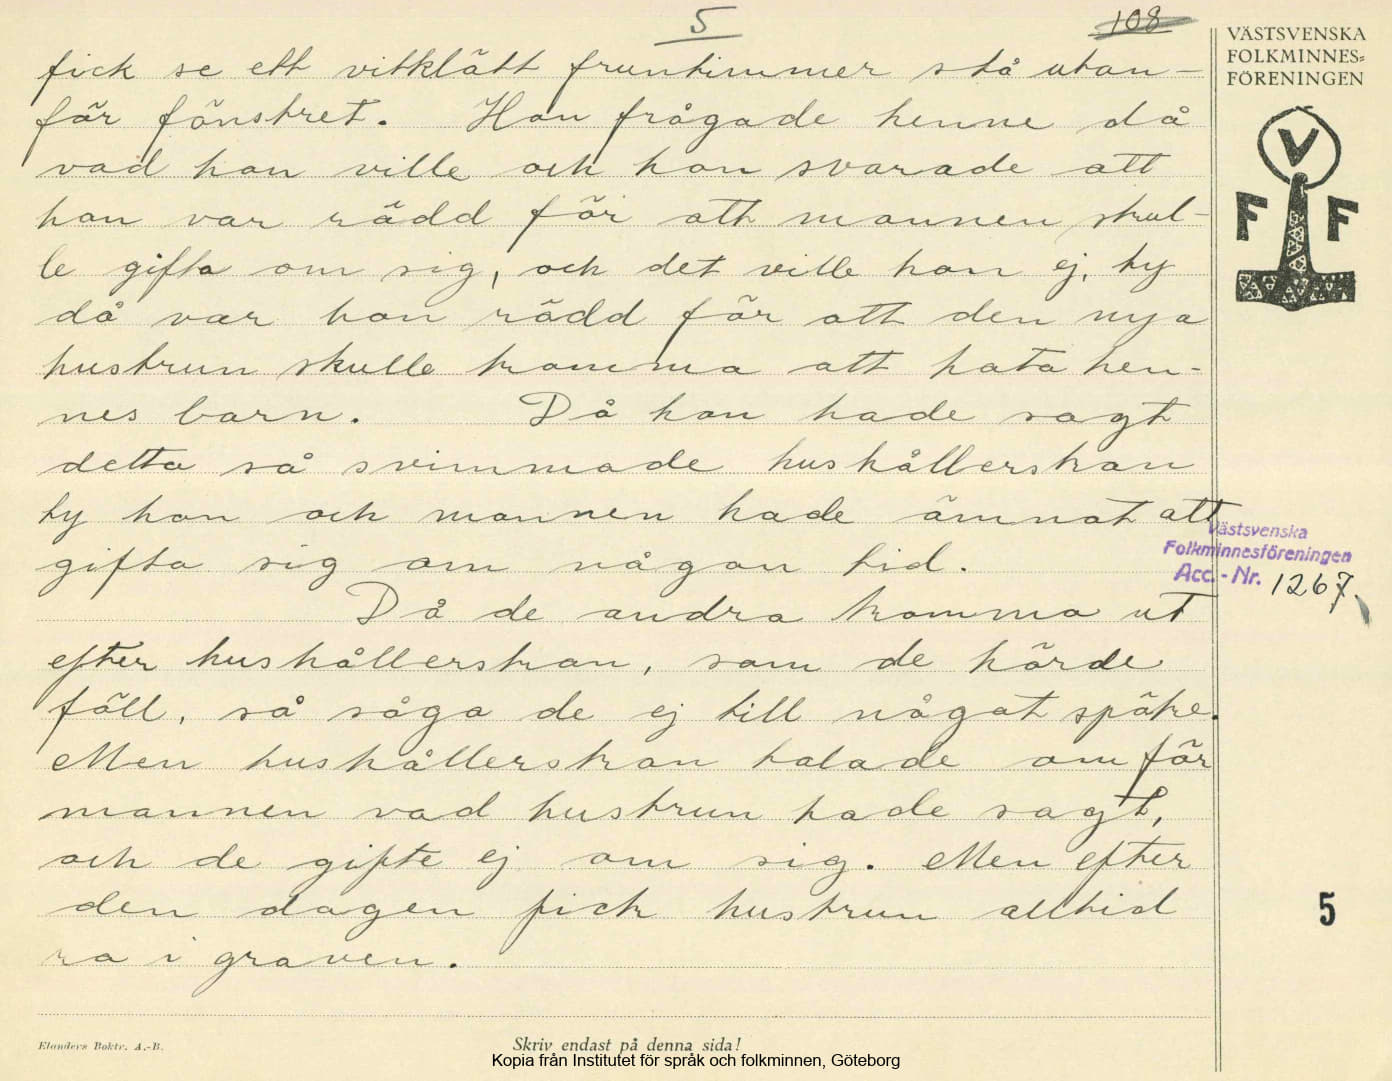 5
108
fick se ett vitklätt fruntimmer stå utan-
för fönstret. Hon frågade henne då
vad hon ville och hon svarade att
hon var rädd för att mannen skul-
le gifta om sig, och det ville hon ej, ty
då var hon rädd för att den nya
hustrun skulle komma att hata hen-
nes barn. Då hon hade sagt
detta så svimmade hushållerskan
ty hon och mannen hade ämnat att
gifta sig om någon tid.
Då de andra komma ut
efter hushållerskan, som de hörde
föll, så såga de ej till något spöke.
Men hushållerskan talade om för
mannen vad hustrun hade sagt,
och de gifte ej om sig. Men efter
den dagen fick hustrun alltid
ro i graven.
VÄSTSVENSKA
FOLKMINNES-
FÖRENINGEN
V
F F
Västsvenska
Folkminnesföreningen
Acc.-Nr. 1267.
5
Elanders Boktr. A.-B.
Skriv endast på denna sida!
Kopia från Institutet för språk och folkminnen, Göteborg